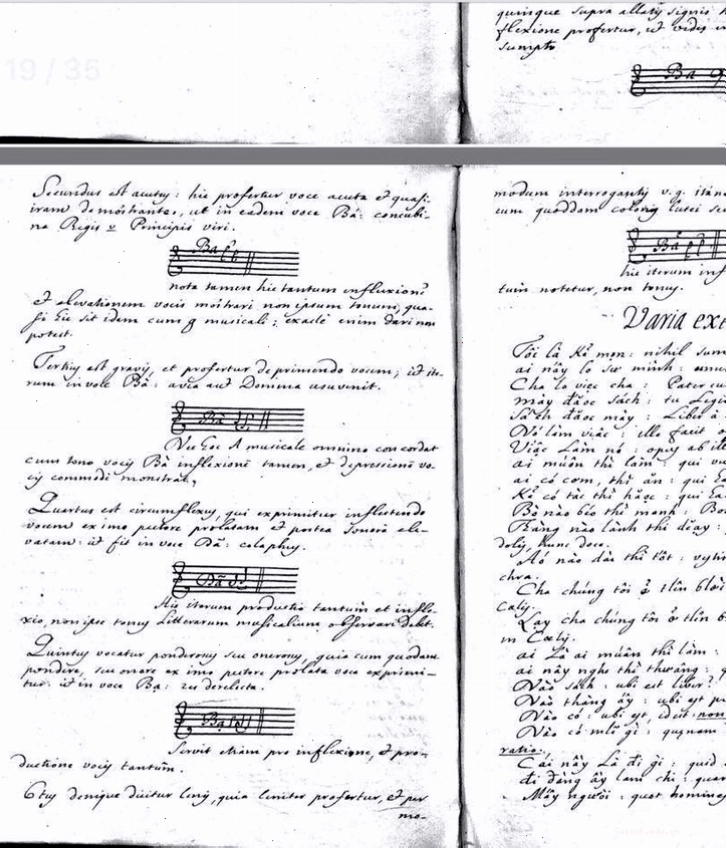 19 / 35
quinque supra allatis signis
flexione profertur, ut vides in
sumpto
Ba
Secundus est acutus: hic profertur voce acuta et quasi
iram demonstrante, ut in eadem voce Bá: concubi-
na Regis Principis viri.
Bá
nota tamen hic tantum inflexionē
et elevationem vocis monstrari non ipsum tonum, qua-
si hic sit idem cum musicali; exacte enim dari non
potest.
Tertius est gravis, et profertur deprimendo vocem; ut ite-
rum in voce Bà: avia aut Domina usuvenit.
Bà
Nec hoc A musicale omnino concordat
cum tono vocis Bà inflexionē tamen, et depressionē vo-
cis commodē monstrat,
Quartus est circumflexus, qui exprimitur inflectendo
vocem ex imo pectore prolatam et postea sonorē ele-
vatam: ut fit in voce Bã: colaphus.
Bã
His iterum productio tantum et infle-
xio, non ipse tonus Litterarum musicalium observari debet.
Quintus vocatur ponderosus seu onerosus, quia cum quodam
pondere, seu onere ex imo pectore prolata voce exprimi-
tur: ut in voce Bạ: res derelicta.
Bạ
Servit etiam pro inflexione, et pro-
ductione vocis tantum.
6tus denique dicitur lenis, quia leniter profertur, et per
mo-
modum interrogantis v.g. itin
cum quoddam
Bả
hic iterum inf
tum notetur, non tonus.
Varia ex
Tôi là kẻ mọn: nihil sum
ai nấy lo sự mình:
Cha lo việc cha: Pater cu
mày đăọc sách: tu Legis
sách đăọc mày: Liber à
Nó làm viạc: ille facit
Viạc Làm nó: opus ab ill
ai muốn thì làm: qui vu
ai có com, thì ăn: qui
Kẻ có tác thì hăọc: qui
Bò nào béo thì mạnh: Bo
Răng nào lành thì
dolis, hunc doce.
Aó nào dài thì tốt:
chra.
Cha chúng tôi ở tlin blời
Cælis.
Lạy cha chúng tôi ở tlin b
in Cælis.
ai Là ai muấn thì làm:
ai nấy nghe thì thưảng:
Nào sách: ubi est liber?
Nào thàng ấy: ubi est
Nào có: ubi est, id est: non
Nào có mlẽ gì: quænam
ratio.
Cái nầy Là đí gì: quid
đi đàng ấy làm chi:
Mấy người: quot homines